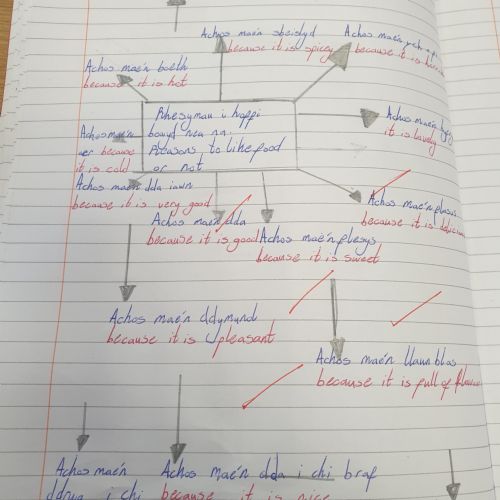 Achos maen sbeislyd
because it is spicy
Achos maén ych
because it is
Achos maén boeth
because it is hot
Rhesymau i hoppi
bowyd neu na.
Reasons to like food
or not
Achos maén
it is lovely
Achos maén
oer because
it is cold
Achos maén dda iawn
because it is very good
Achos maén
because it is
Achos maén dda
because it is good
Achos maén plesys
because it is sweet
Achos maén ddymund
because it is pleasant
Achos maén llawn blas
because it is full of
Achos maén
i chi
Achos maén dda i chi braf
because it is nice